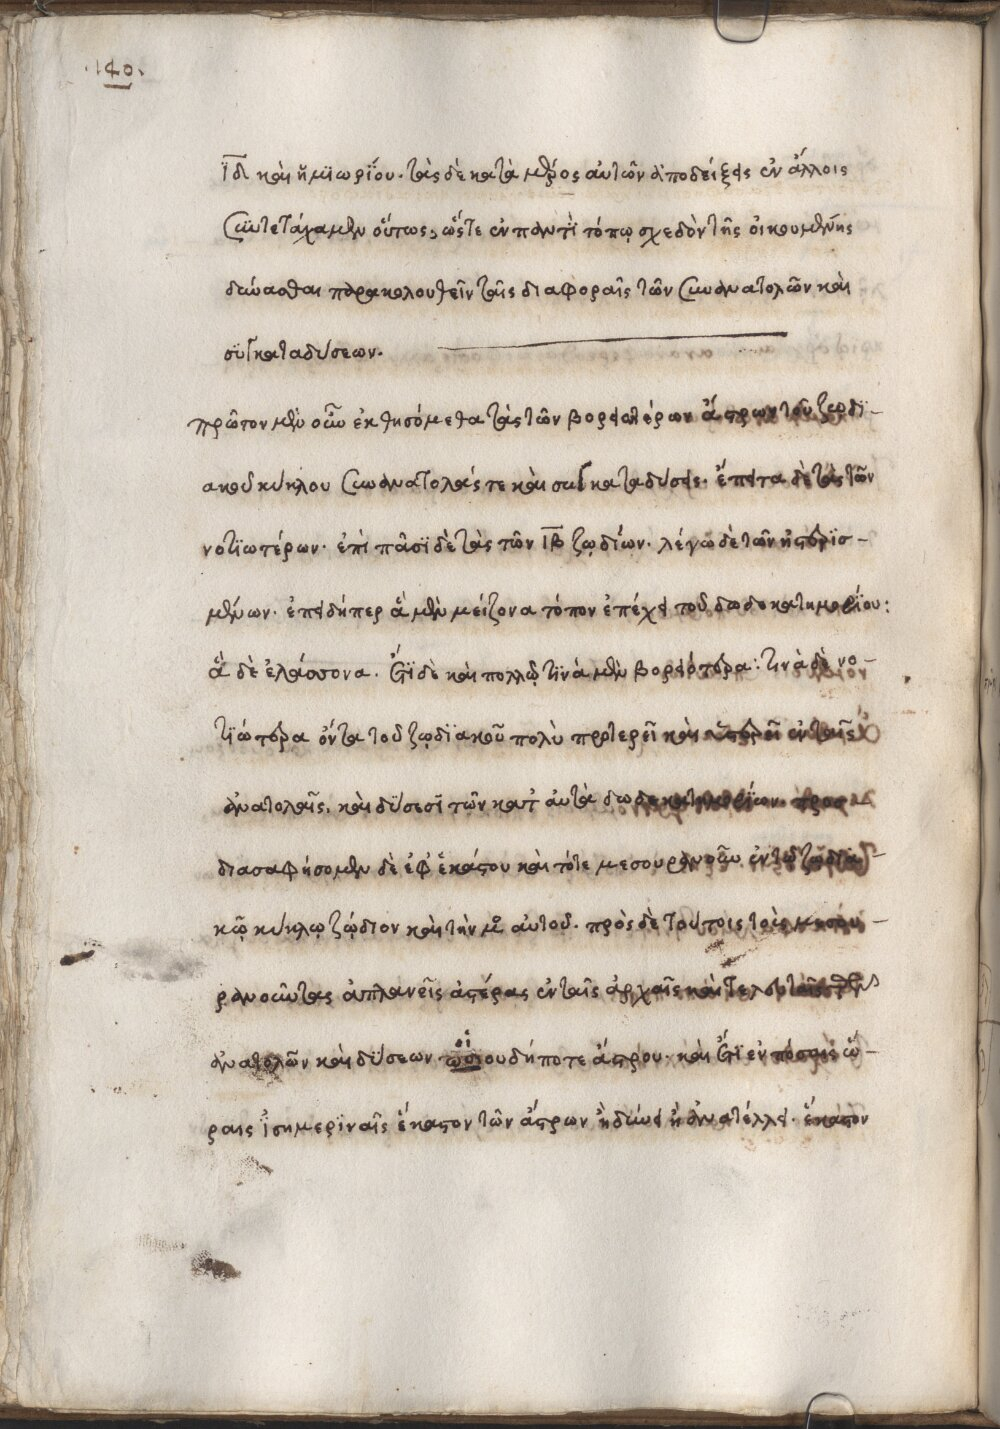 ·140·
ιδ καὶ ἡμϊωρίου· τὰς δὲ κατὰ μέρος αὐτῶν ἀποδείξεις ἐν ἄλλοις
συντετάχαμεν οὕτως, ὥστε ἐν παντὶ τόπῳ σχεδὸν τῆς οἰκουμένης
δύνασθαι παρακολουθεῖν ταῖς διαφοραῖς τῶν συνανατολῶν καὶ
συγκαταδύσεων.
πρῶτον μὲν οὖν ἐκθησόμεθα τὰς τῶν βορειοτέρων ἄστρων τοῦ ζῳδι-
ακοῦ κύκλου συνανατολάς τε καὶ συγκαταδύσεις· ἔπειτα δὲ τὰς τῶν
νοτϊωτέρων· ἐπὶ πᾶσϊ δὲ τὰς τῶν ιβ ζῳδίων· λέγω δὲ τῶν ἠστερϊσ-
μένων· ἐπειδήπερ ἃ μὲν μείζονα τόπον ἐπέχει τοῦ δωδεκατημορίου:
ἃ δὲ ἐλάσσονα· ἔτϊ δὲ καὶ πολλῷ τϊνὰ μὲν βορειότερα: τινὰ δὲ νο-
τϊώτερα ὄντα τοῦ ζῳδϊακοῦ πολὺ προτερεῖ καὶ ὑστερεῖ ἐν ταῖς
ἀνατολαῖς, καὶ δύσεσϊ τῶν κατ' αὐτὰ δωδεκατημορίων. προσ
διασαφήσομεν δὲ ἐφ' ἑκάστου καὶ τότε μεσουρανοῦν ἐν τῷ ζῳδϊα-
κῷ κύκλῳ ζῴδιον καὶ τὴν μο αὐτοῦ· πρὸς δὲ τούτοις τοὺς μεσου-
ρανοῦντας ἀπλανεῖς ἀστέρας ἐν ταῖς ἀρχαῖς καὶ τελευταῖς τῶν
ἀνατολῶν καὶ δύσεων οἱουδήποτε ἄστρου· καὶ ἔτϊ ἐν πόσαις ὥ-
ραις ἰσημερϊναῖς ἕκαστον τῶν ἄστρων ἢ δύνει ἢ ἀνατέλλει· ἕκαστον